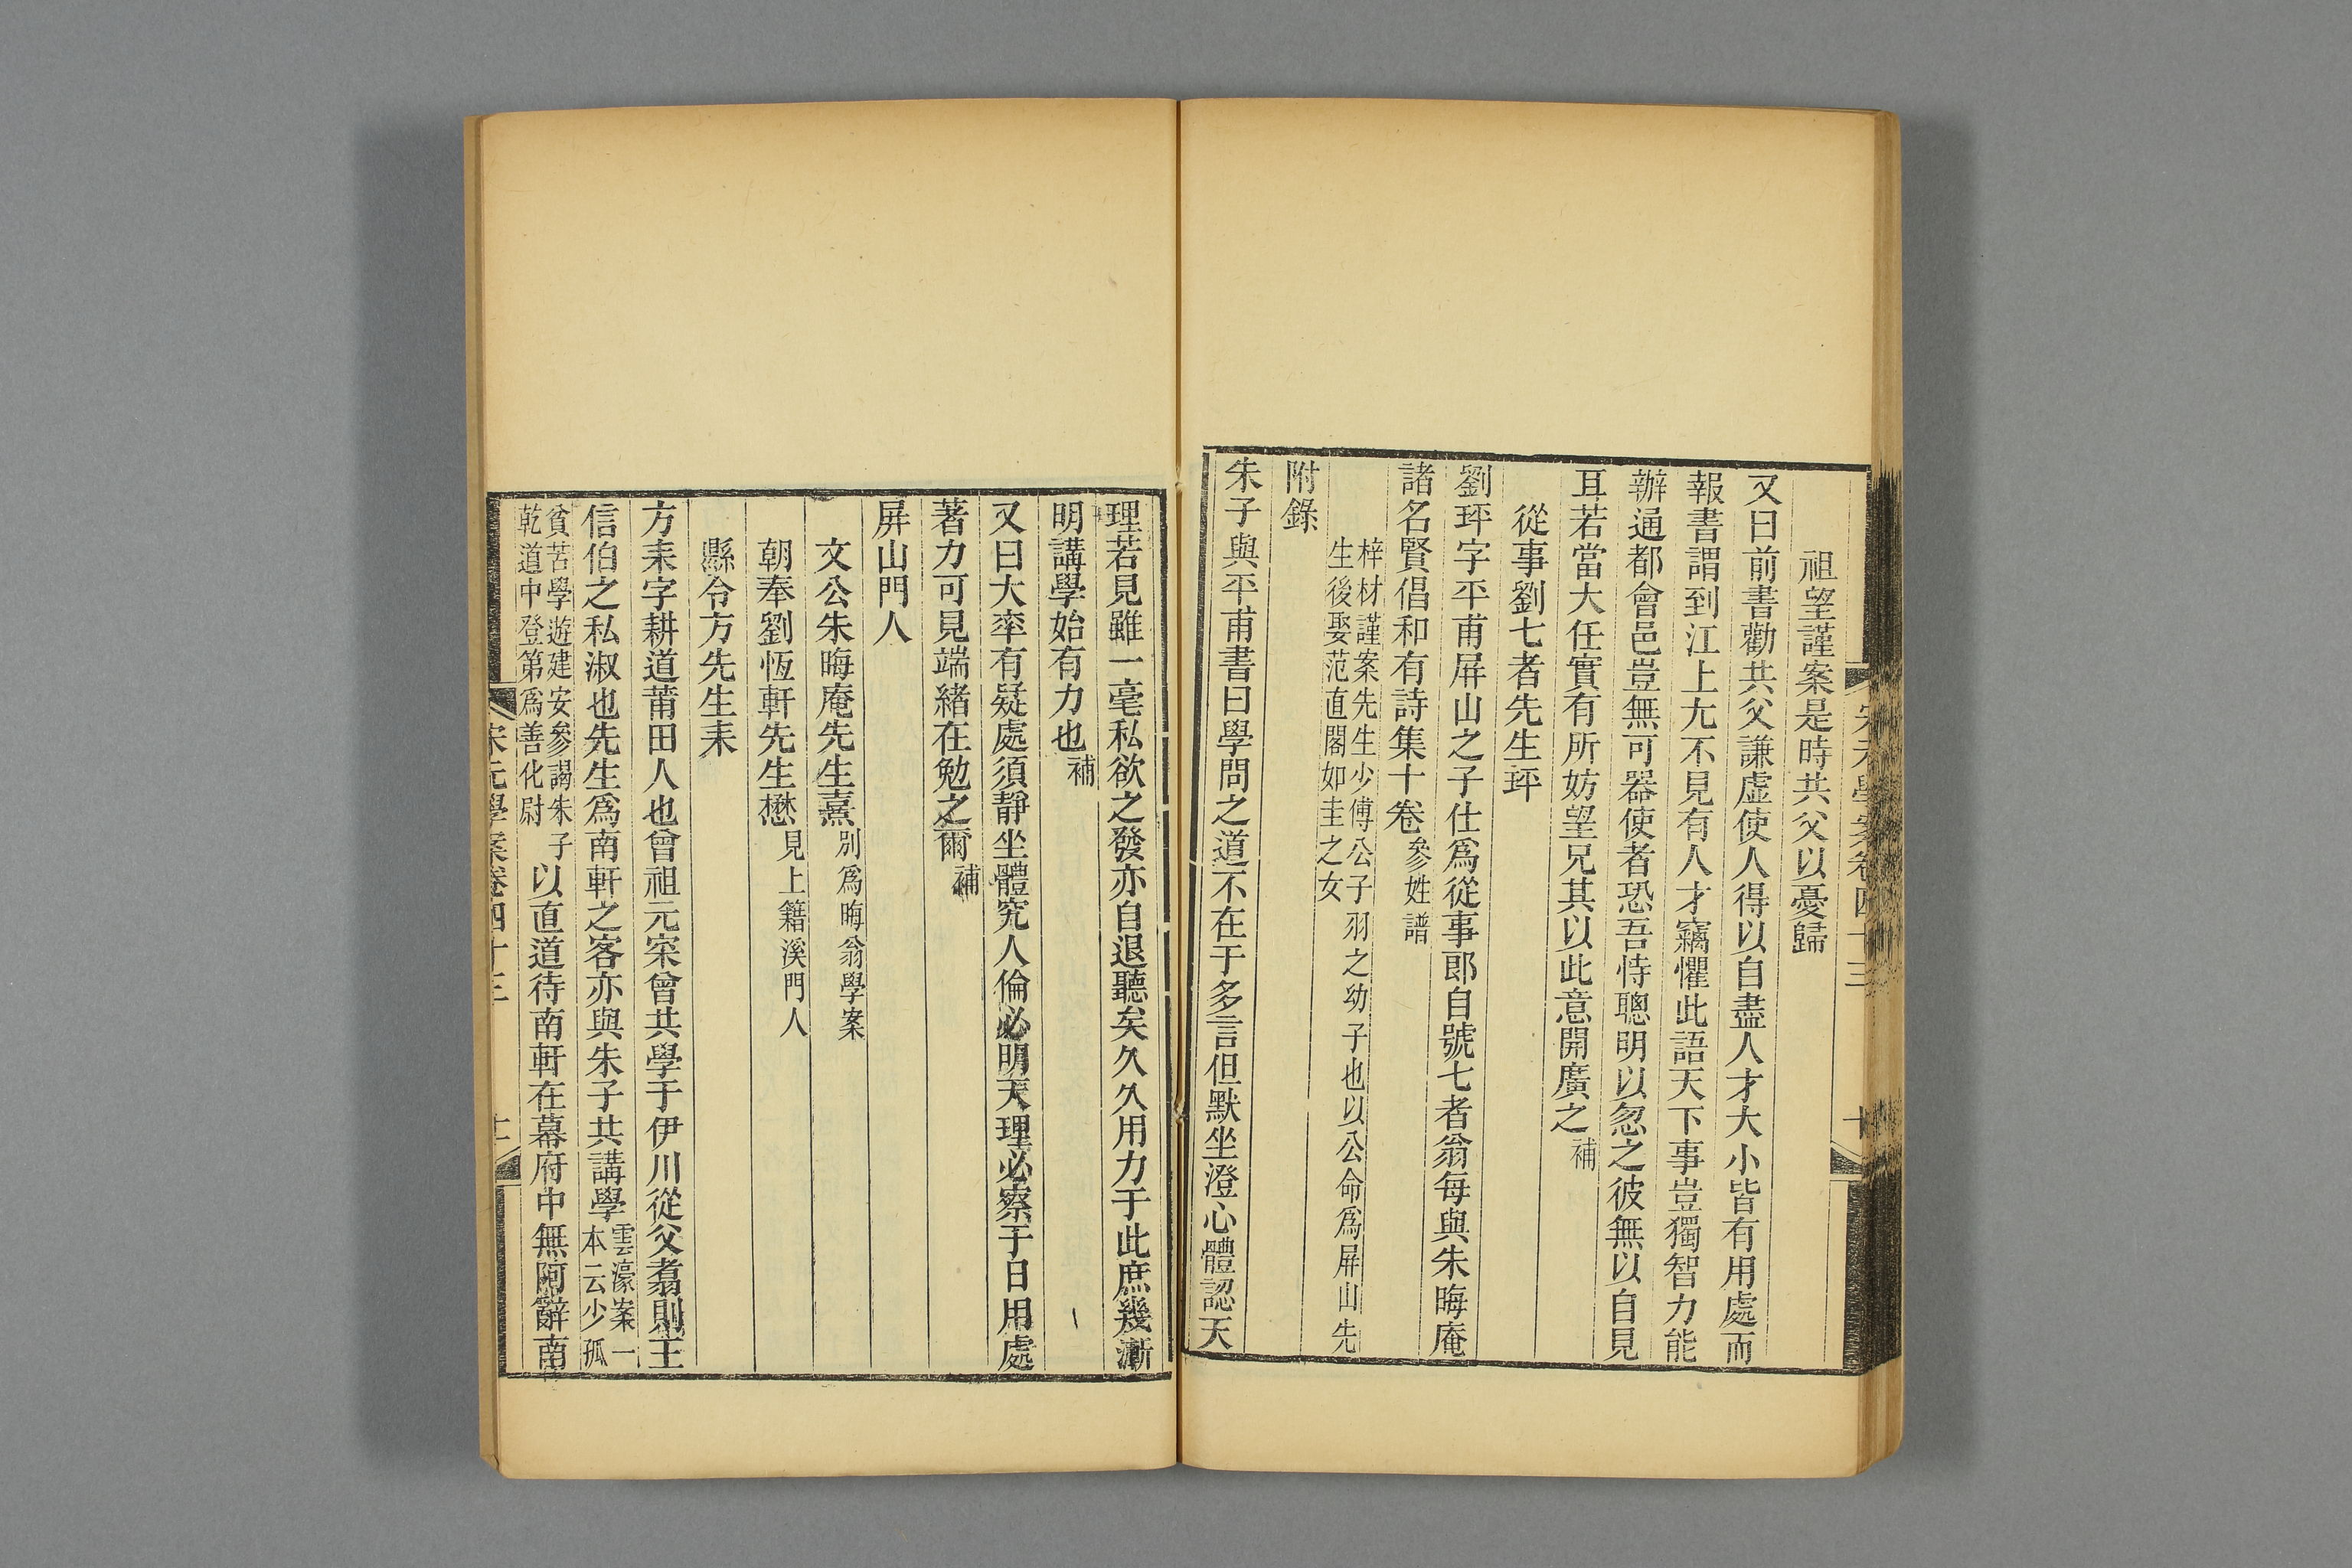 宋元學案卷四十三
十
祖望謹案是時共父以憂歸
又曰前書勸共父謙虛使人得以自盡人才大小皆有用處而
報書謂到江上尢不見有人才竊懼此語天下事豈獨智力能
辦通都會邑豈無可器使者恐吾恃聰明以忽之彼無以自見
耳若當大任實有所妨望兄其以此意開廣之補
從事劉七者先生玶
劉玶字平甫屏山之子仕爲從事郎自號七者翁每與朱晦庵
諸名賢倡和有詩集十卷參姓譜
梓材謹案先生少傅公子羽之幼子也以公命爲屏山先
生後娶范直閣如圭之女
附錄
朱子與平甫書曰學問之道不在于多言但默坐澄心體認天
理若見雖一毫私欲之發亦自退聽矣久久用力于此庶幾漸
明講學始有力也補
又曰大率有疑處須靜坐體究人倫必明天理必察于日用處
著力可見端緒在勉之爾補
屏山門人
文公朱晦庵先生熹別爲晦翁學案
朝奉劉恆軒先生懋見上籍溪門人
縣令方先生耒
方耒字耕道莆田人也曾祖元寀曾共學于伊川從父翥則王
信伯之私淑也先生爲南軒之客亦與朱子共講學雲濠案一本云少孤
貧苦學遊建安參謁朱子乾道中登第爲善化尉以直道待南軒在幕府中無阿辭南
宋元學案卷四十三
十一